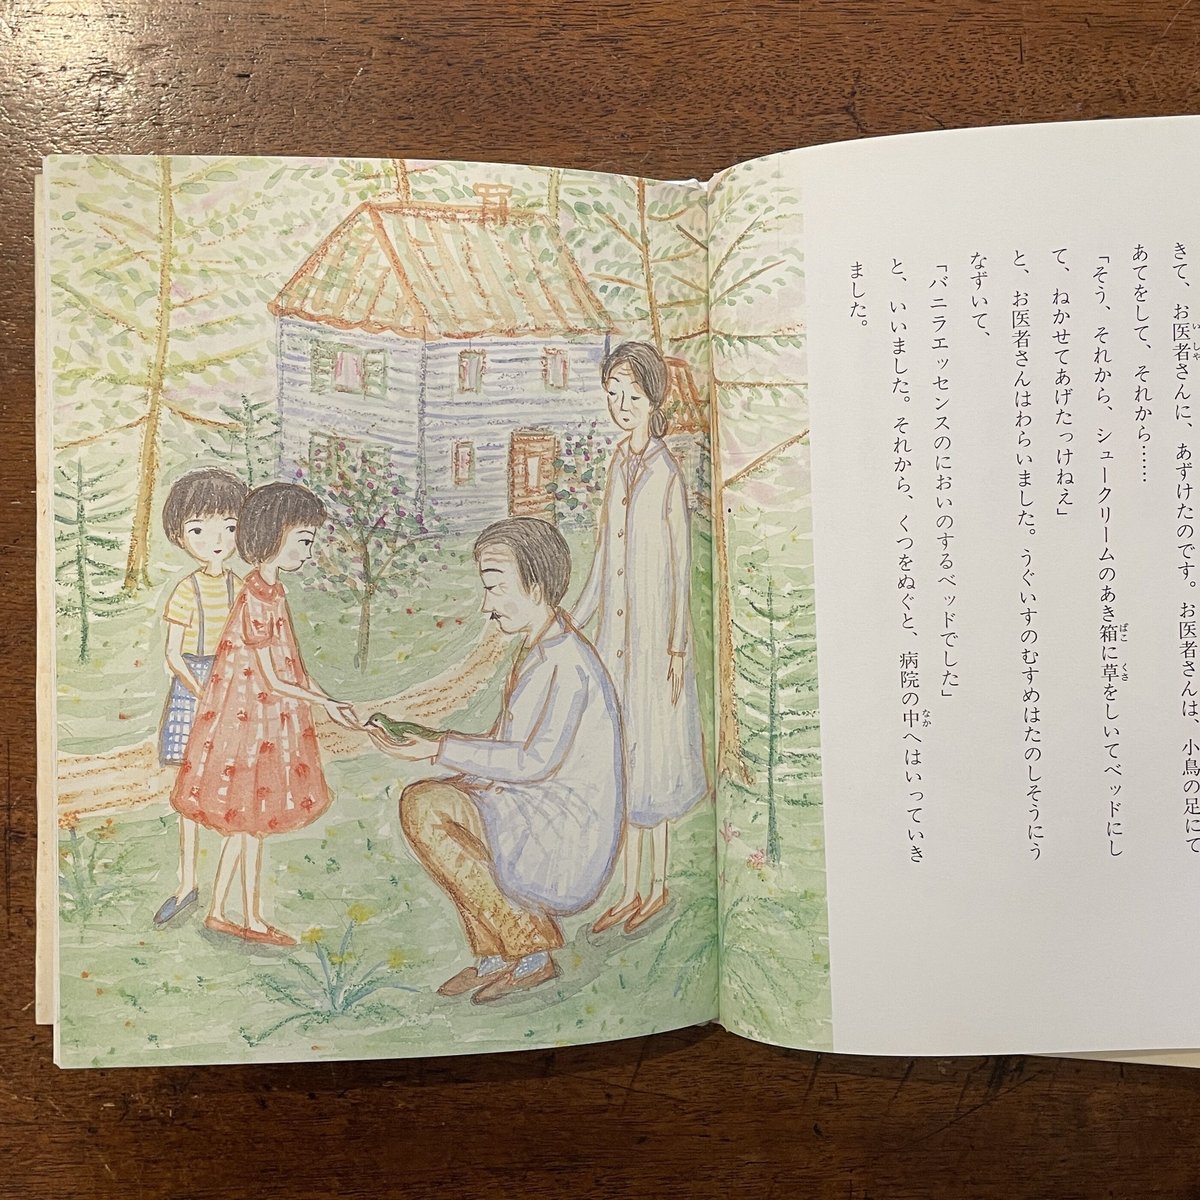 きて、お医者さんに、あずけたのです。お医者さんは、小鳥の足にて
あてをして、それから……
「そう、それから、シュークリームのあき箱に草をしいてベッドにし
て、ねかせてあげたっけねえ」
と、お医者さんはわらいました。うぐいすのむすめはたのしそうにう
なずいて、
「バニラエッセンスのにおいのするベッドでした」
と、いいました。それから、くつをぬぐと、病院の中へはいっていき
ました。